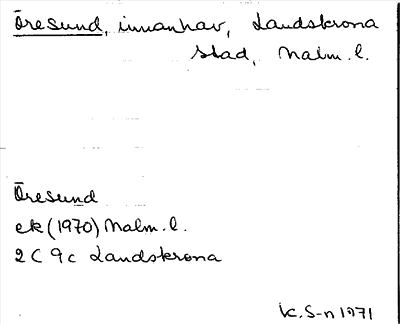 Öresund, innanhav, Landskrona
stad, Malm. l.
Öresund
ek (1970) Malm. l.
2C 9c Landskrona
K. S-n 1971